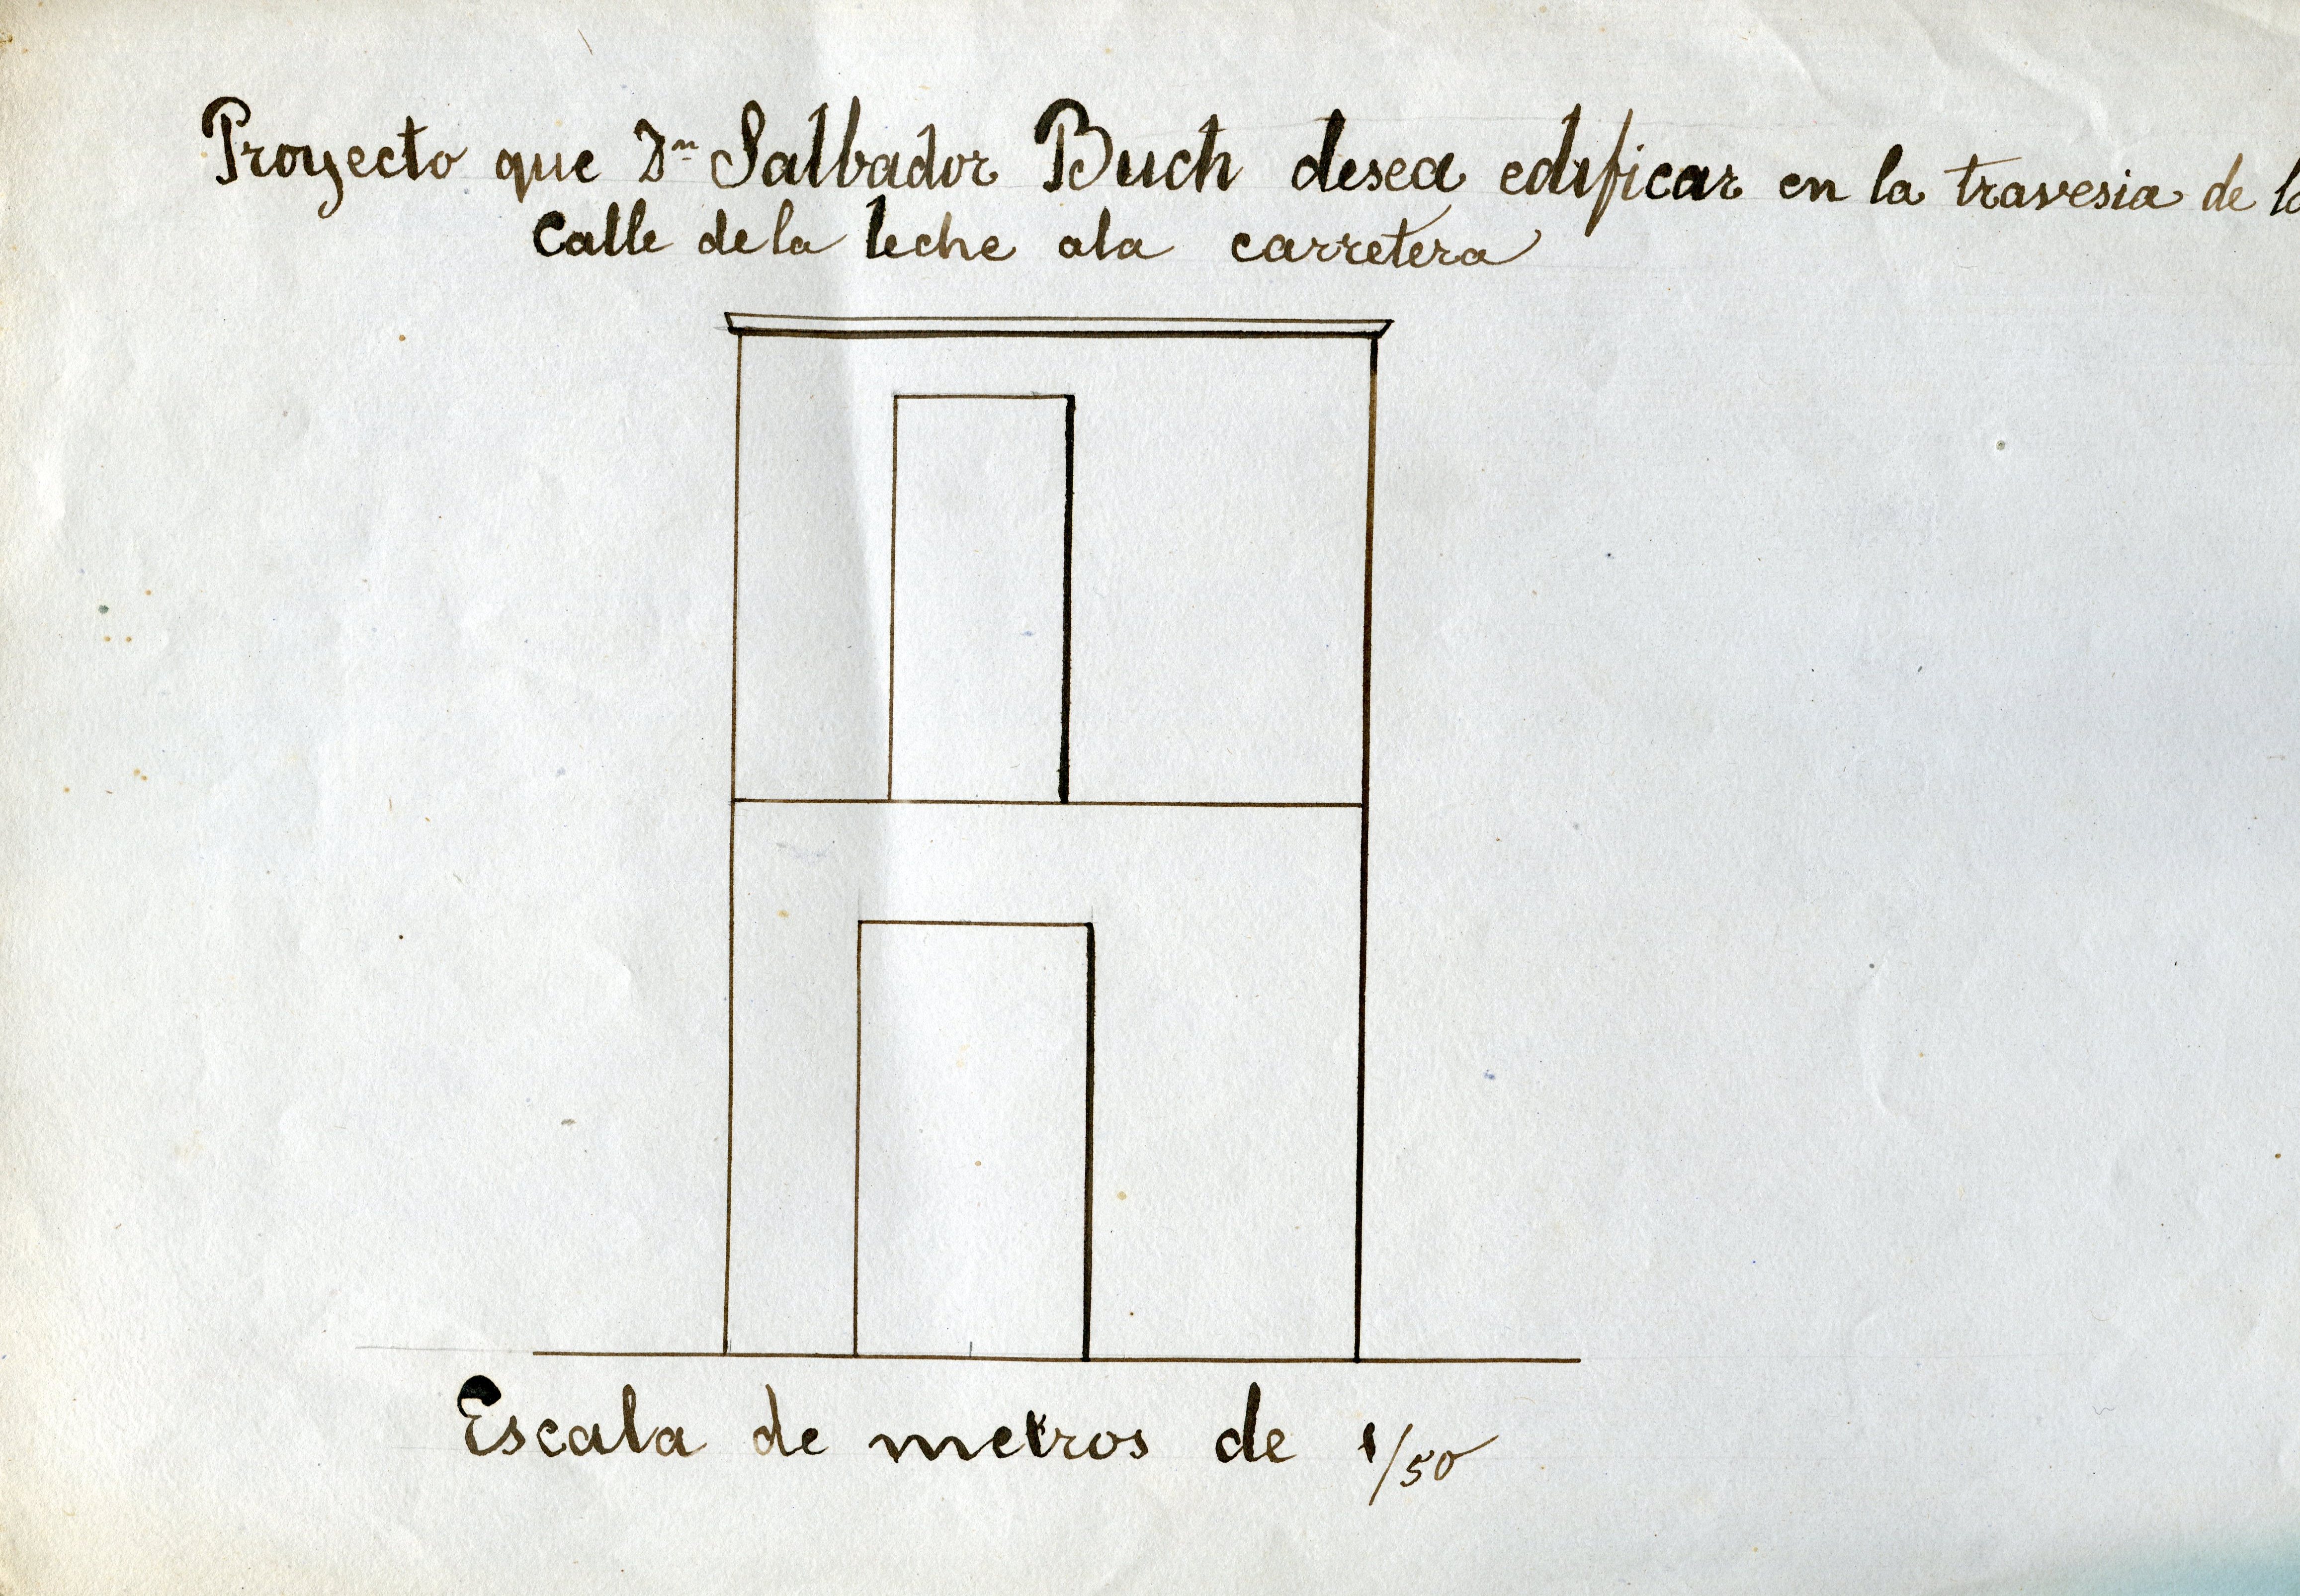 Proyecto que Dn Salbador Buch desea edificar en la travesia de la
Calle dela leche ala carretera
Escala de metros de 1/50